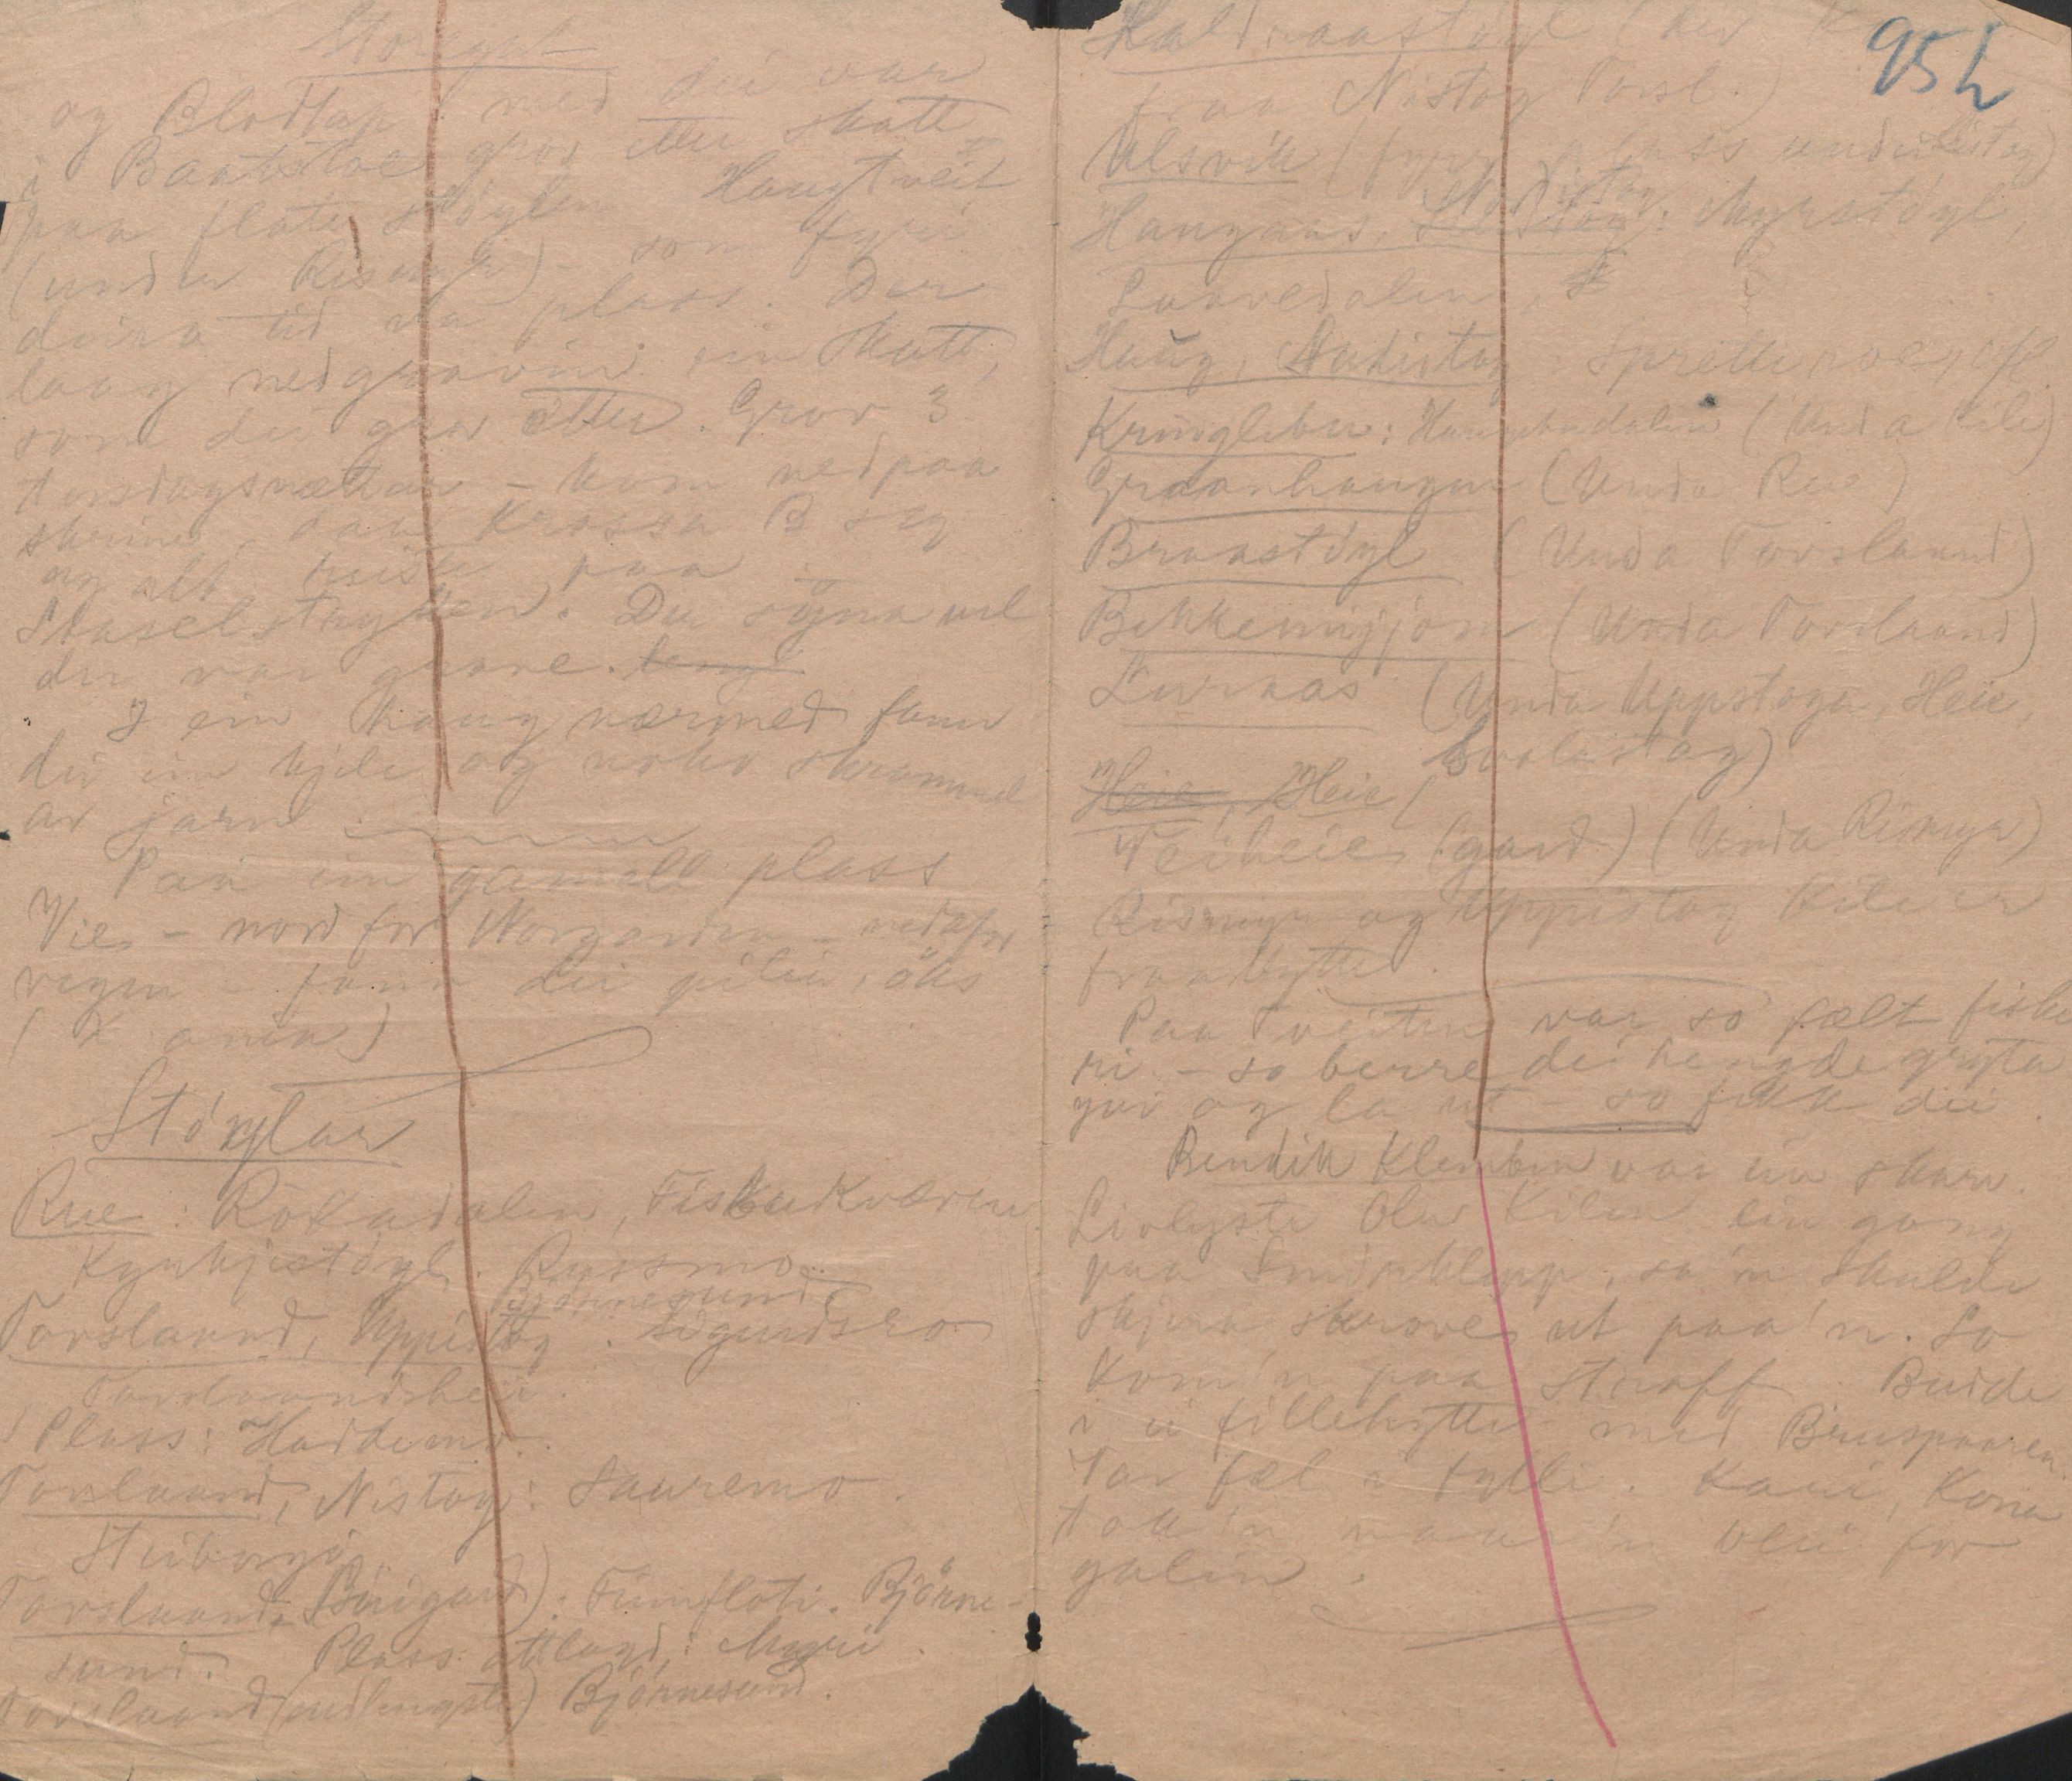 Storegut
og Blodtap med dei var
i Baatstoe grov etter skatt
paa flate støylen Haugtveit
(under Rismyr) som fyri
deira tid va plass. Der
laag nedgravin ein skatt,
som dei grov etter. Grov 3
torsdagsnættar – kom ned paa
skrine, daa krossa B seg
og alt miste paa
Staselstykken. Der syna vel
der var grave.
I ein haug nærmed fann
dei ein kjele og noko skrammel
av jarn
Paa ein gamall plass
Vie – nord for Norgarden – nedafor
vegen – fann dei pilar, øks
Støylar
Rue: Rökadalen, Fiskelikværven
Kyrkjestøyl. Russmo.
Björnesund
Torslaand, Uppistog: Sigurdsro
Torslaandsheii.
Plass: Haddemo.
Torslaand, Nistog: Sauremo.
Steiborgi.
Torslaand, (Sørigard): Finnfloti. Björne-
sund. Plass attlagd: Myri.
Torslaand (nedlengste) Björnesund.
95 h
fraa Nistog Torsl.)
Ulsvik (fyrr plass under Nistog)
Nordistog
Haugans, Nistog: Myrstøyl,
Laavedalen,
Haug, Nordistog: Sprette,
Kringlebu: Haugebudalen (Unda Kile)
Graanhaugen (Unda Rue)
Braastøyl (Unda Torslaand)
Bekkemyjom (Unda Torslaand)
Luraas (Unda Uppstoga, Heie,
Svolistog)
Heie, Heie (
Veiheie (gard) (Unda Rismyr)
Rismyr og Uppistog Kile er
fraabytte.
Paa Tveiten var so fælt fiske
ri – so berre dei hengde gryta
yvi og la ut – so fekk dei.
Bendik Klemben var ein skarv.
Livlyste Olav Kilen ein gong
paa Smørklepp, sa'n skulde
skjera skrove ut paa'n. So
kom'n paa straff. Budde
i ei fillehytte med Bruspaaren.
Var fæl i fylli. Kari, Kona
tok'n naar'n blei for
galen.